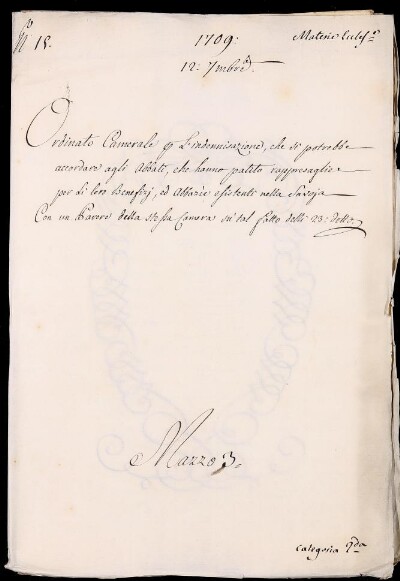 N.º 18.
1709:
Materie Eccles.e
12: 7mbre.
Ordinato Camerale p L'indennisazione, che si potrebbe
accordare agli Abbati, che hanno patito rappresaglie
per li loro Beneficj, ed Abbazie esistenti nella Savoja
Con un Parere della stessa Camera su tal fatto delli 23: detto.
Mazzo 3.
Categoria da